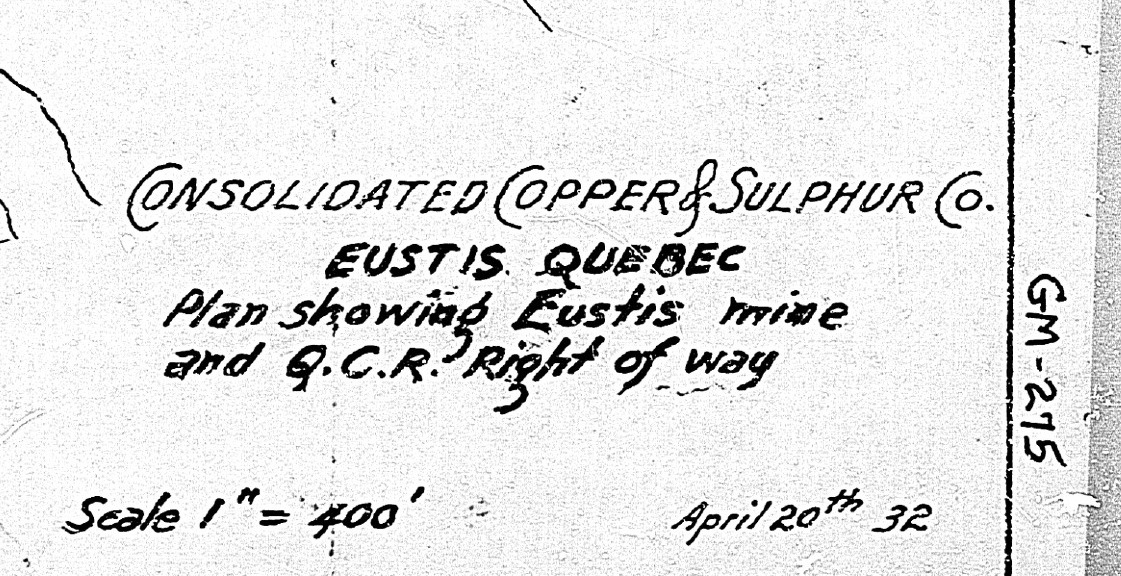 CONSOLIDATED COPPER & SULPHUR CO.
EUSTIS. QUEBEC
Plan showing Eustis mine
and Q.C.R. Right of way
Scale 1" = 400'
April 20th 32
GM-275